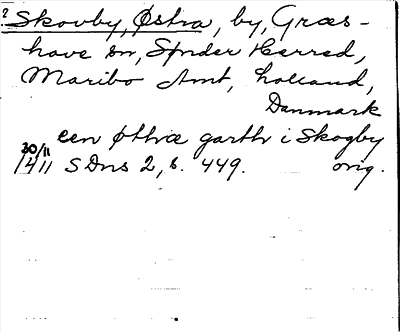 ? Skovby, Østra, by, Græs-
have sn, Sönder Herred,
Maribo Amt, Lolland,
Danmark
een øthræ garth i Skogby
30/11
1411 SDns 2, s. 449. orig.